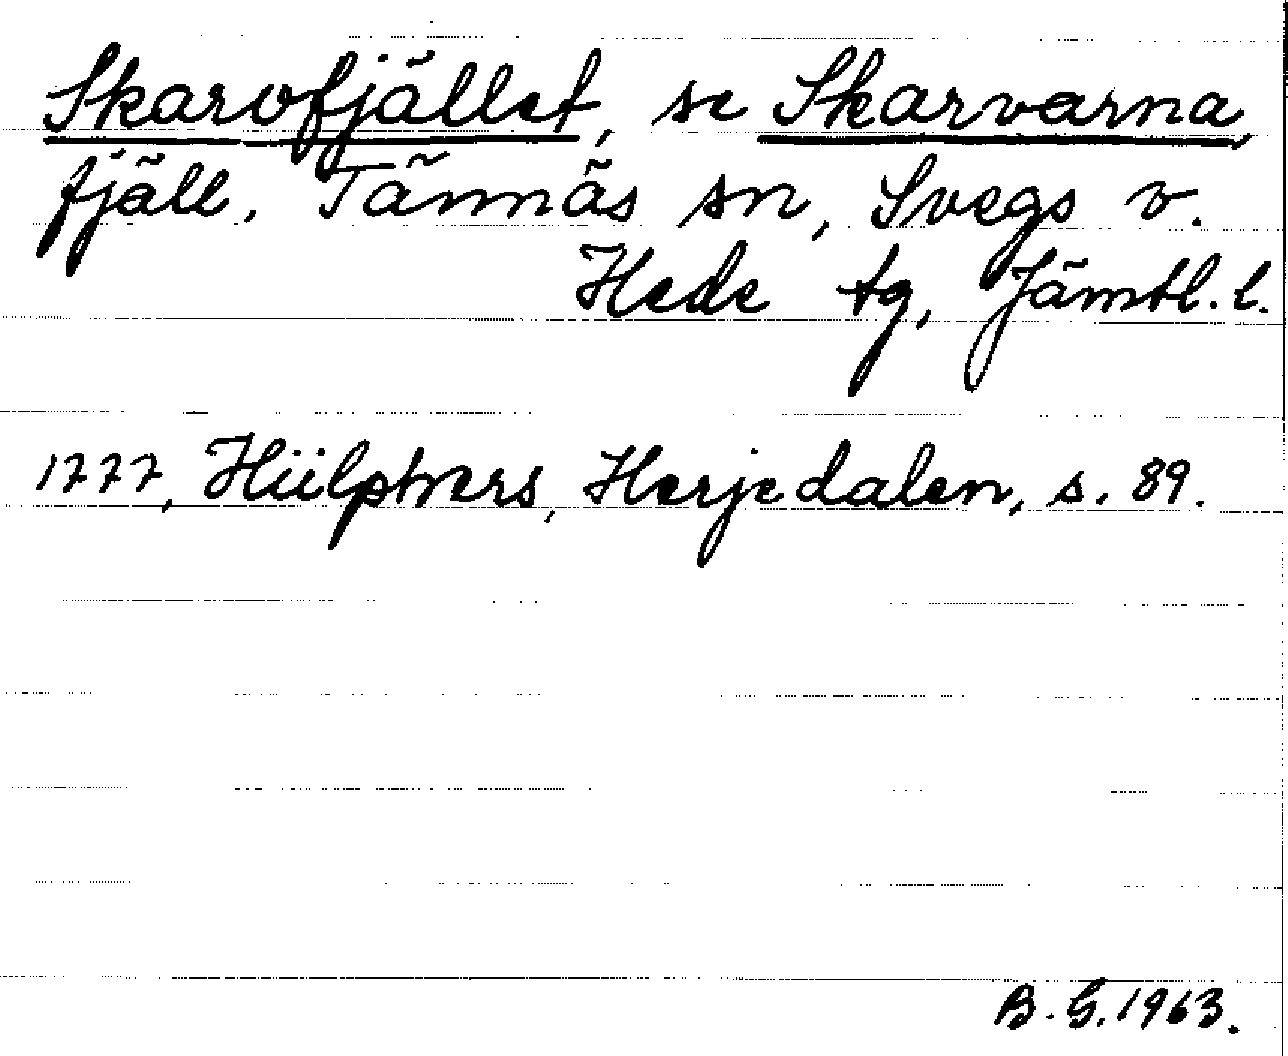 Skarvfjället, se Skarvarna,
fjäll, Tännäs sn, Svegs v.
Hede tg, Jämtl. l.
1777, Hülphers, Herjedalen, s. 89.
B. G. 1963.